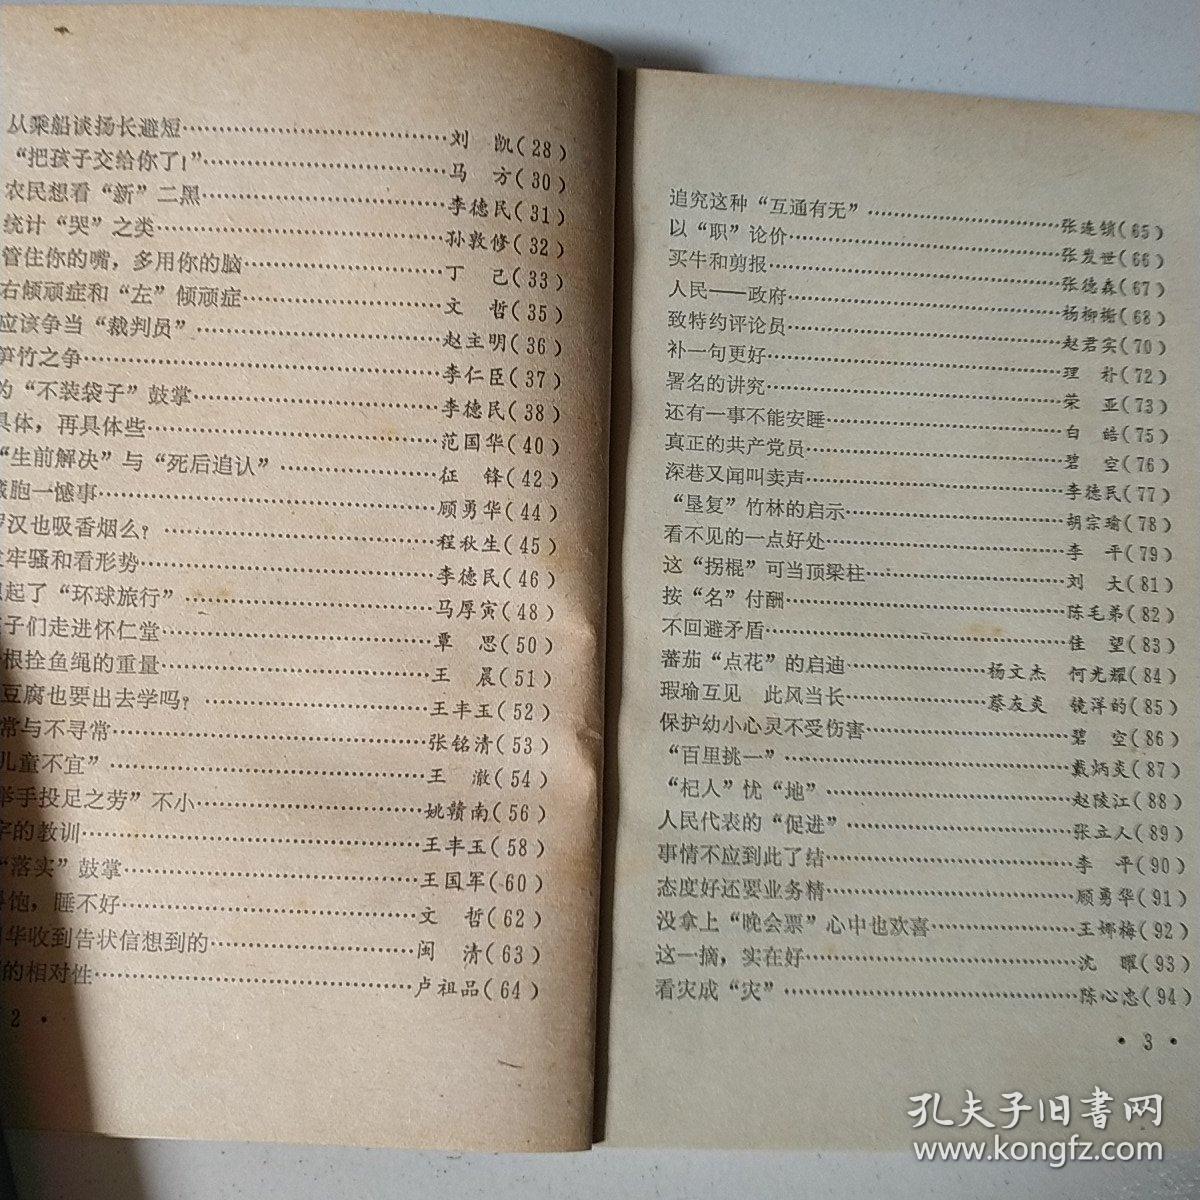 从乘船谈扬长避短……刘 凯(28)
“把孩子交给你了!”……马 方(30)
农民想看“新”二黑……李德民(31)
统计“哭”之类……孙敦修(32)
管住你的嘴，多用你的脑……丁 己(33)
右倾顽症和“左”倾顽症……文 哲(35)
应该争当“裁判员”……赵主明(36)
笋竹之争……李仁臣(37)
的“不装袋子”鼓掌……李德民(38)
具体，再具体些……范国华(40)
“生前解决”与“死后追认”……征 锋(42)
胞一憾事……顾勇华(44)
罗汉也吸香烟么?……程秋生(45)
牢骚和看形势……李德民(46)
起了“环球旅行”……马厚寅(48)
孩子们走进怀仁堂……覃 思(50)
根拴鱼绳的重量……王 晨(51)
豆腐也要出去学吗?……王丰玉(52)
常与不寻常……张铭清(53)
儿童不宜”……王 澈(54)
举手投足之劳”不小……姚赣南(56)
字的教训……王丰玉(58)
“落实”鼓掌……王国军(60)
饱，睡不好……文 哲(62)
华收到告状信想到的……闽 清(63)
的相对性……卢祖品(64)
2 ·
追究这种“互通有无”……张连锁(65)
以“职”论价……张发世(66)
买牛和剪报……张德森(67)
人民——政府……杨柳榆(68)
致特约评论员……赵君实(70)
补一句更好……理 朴(72)
署名的讲究……荣 亚(73)
还有一事不能安睡……白 皓(75)
真正的共产党员……碧 空(76)
深巷又闻叫卖声……李德民(77)
“垦复”竹林的启示……胡宗瑜(78)
看不见的一点好处……李 平(79)
这“拐棍”可当顶梁柱……刘 大(81)
按“名”付酬……陈毛弟(82)
不回避矛盾……佳 望(83)
蕃茄“点花”的启迪……杨文杰 何光耀(84)
瑕瑜互见 此风当长……蔡友炎 镜洋的(85)
保护幼小心灵不受伤害……碧 空(86)
“百里挑一”……戴炳炎(87)
“杞人”忧“地”……赵陵江(88)
人民代表的“促进”……张立人(89)
事情不应到此了结……李 平(90)
态度好还要业务精……顾勇华(91)
没拿上“晚会票”心中也欢喜……王娜梅(92)
这一摘，实在好……沈 曜(93)
看灾成“灾”……陈心忠(94)
· 3 ·
孔夫子旧书网
www.kongfz.com